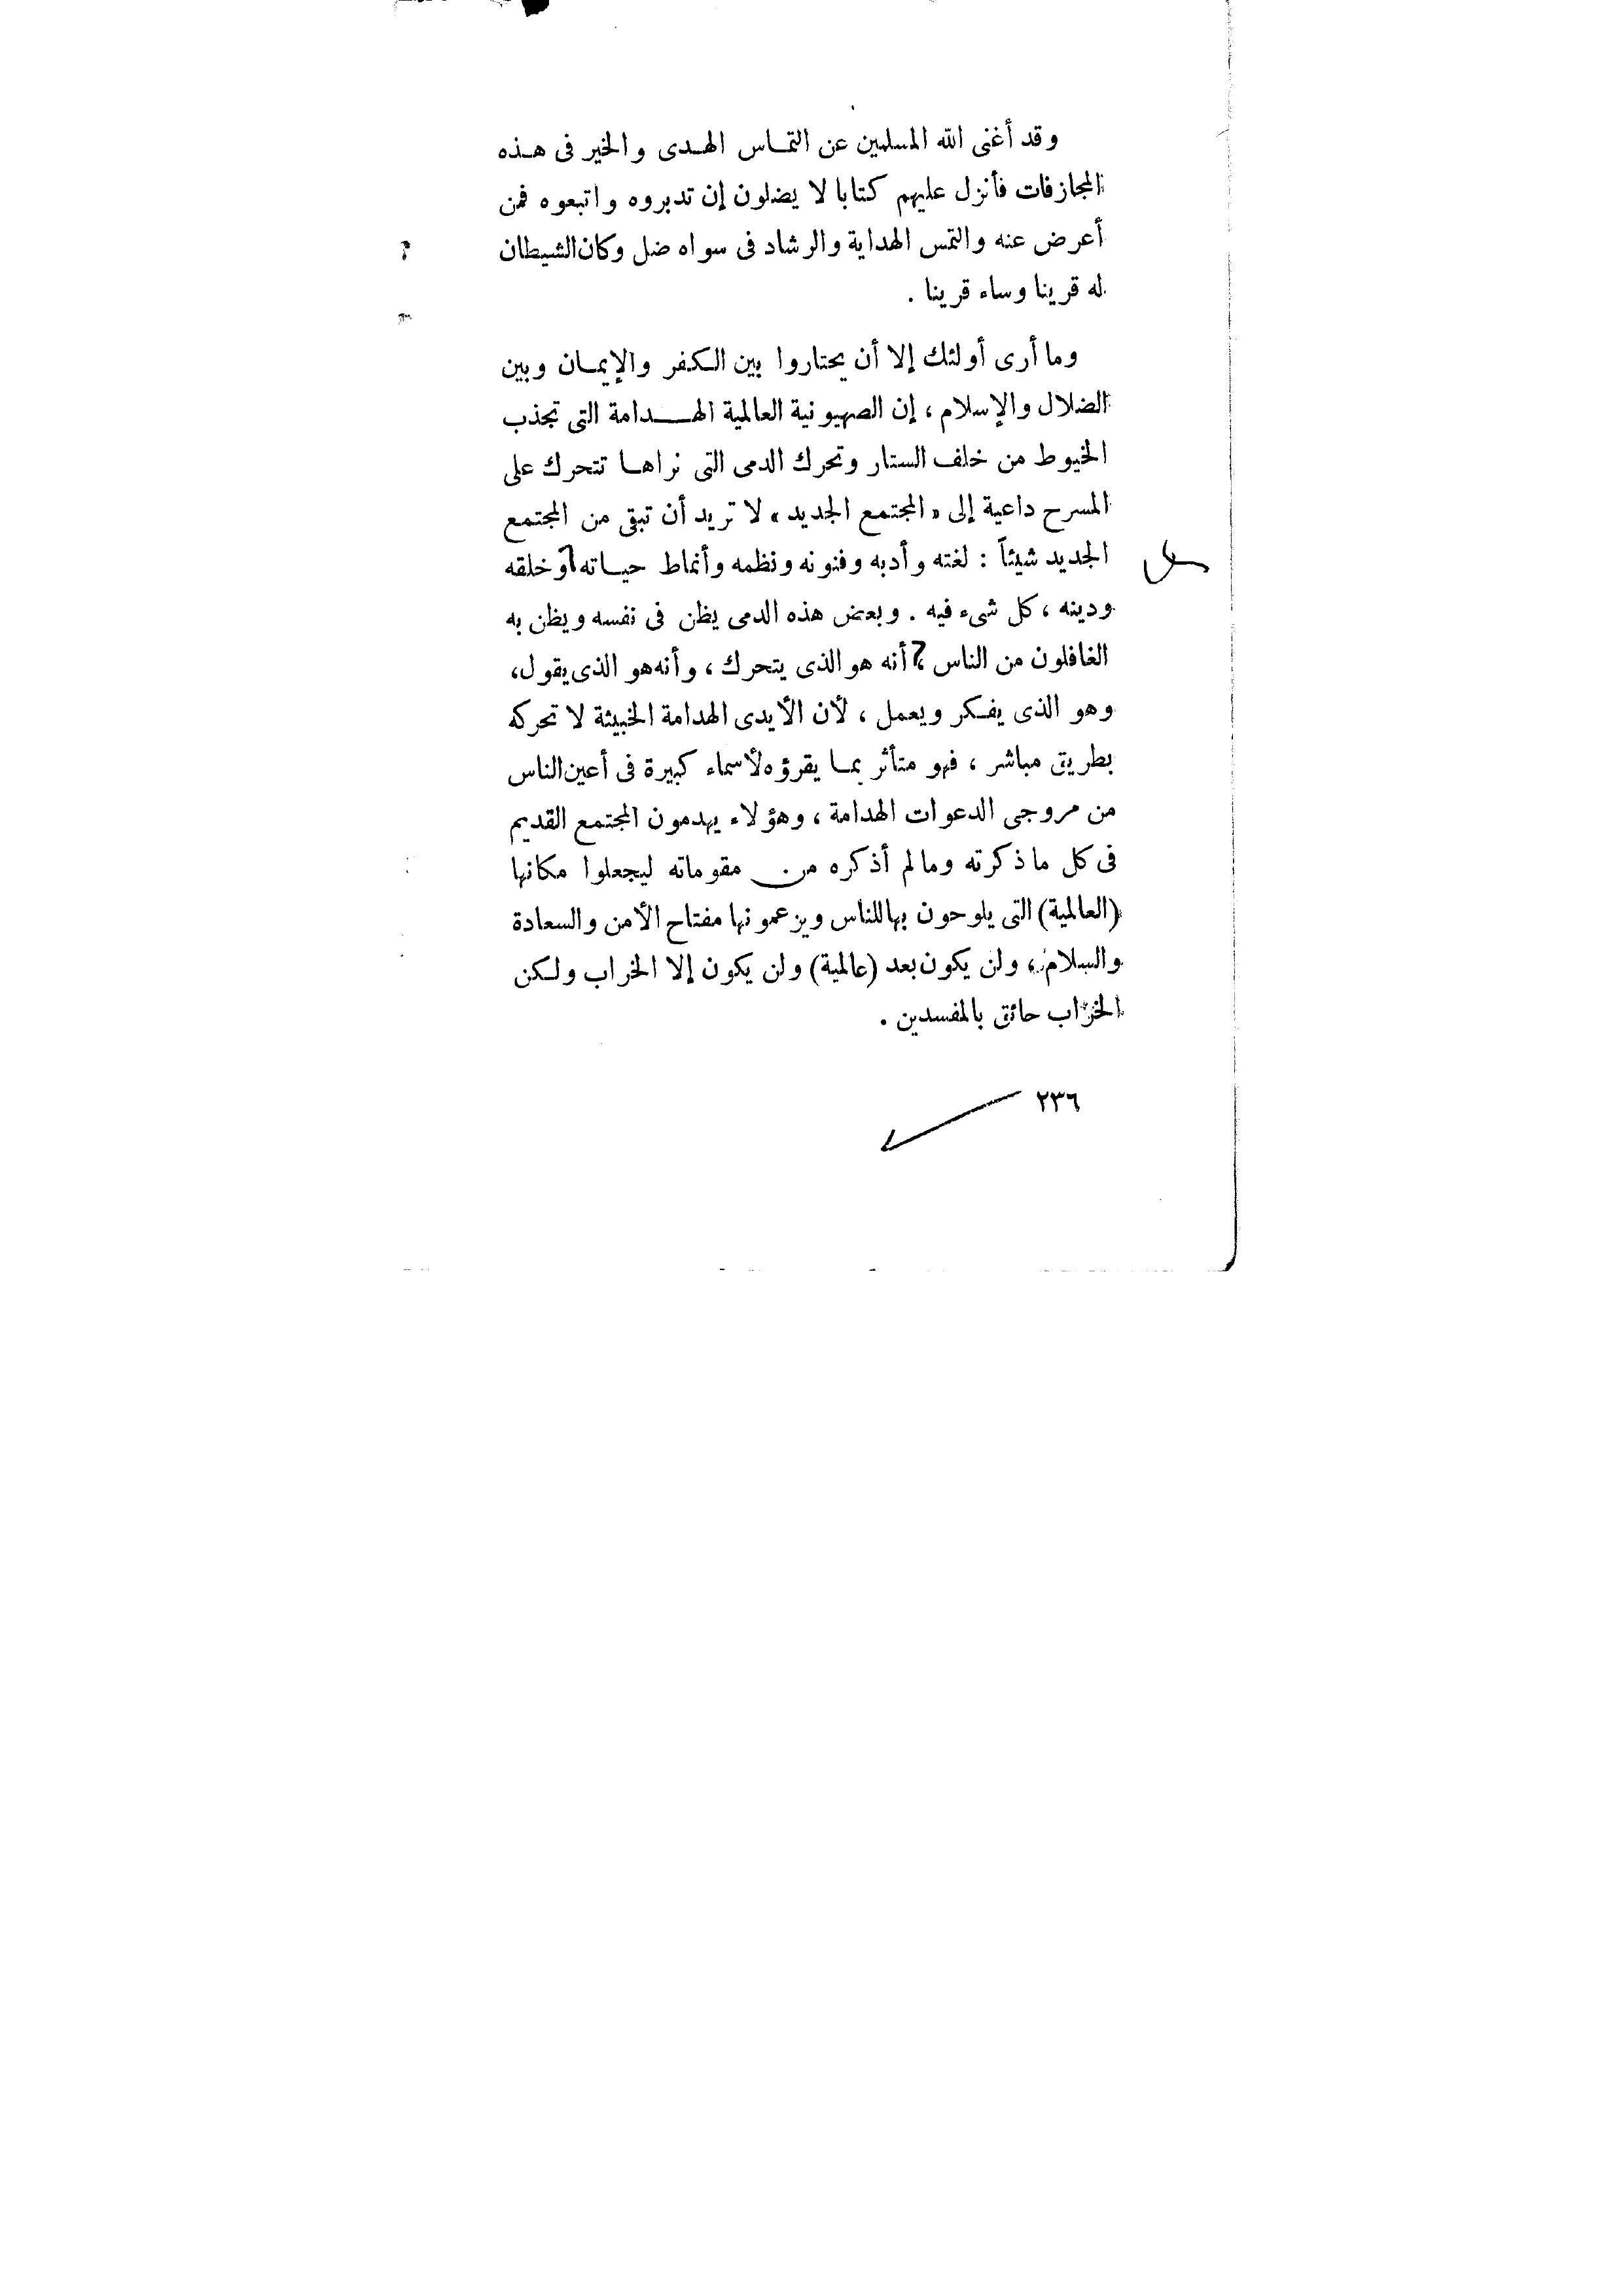 وقد أغنى الله المسلمين عن التماس الهدى والخير فى هذه
المجازفات فأنزل عليهم كتابا لا يضلون إن تدبروه واتبعوه فمن
أعرض عنه والتمس الهداية والرشاد فى سواه ضل وكان الشيطان
له قرينا وساء قرينا .
وما أرى أولئك إلا أن يحتاروا بين الكفر والإيمان وبين
الضلال والإسلام ، إن الصهيونية العالمية الهدامة التى تجذب
الخيوط من خلف الستار وتحرك الدمى التى نراها تتحرك على
المسرح داعية إلى « المجتمع الجديد » لا تريد أن تبقى من المجتمع
الجديد شيئاً : لغته وأدبه وفنونه ونظمه وأنماط حياته أو خلقه
ودينه ، كل شىء فيه . وبعض هذه الدمى يظن فى نفسه ويظن به
الغافلون من الناس ، أنه هو الذى يتحرك ، وأنه هو الذى يقول ،
وهو الذى يفكر ويعمل ، لأن الأيدى الهدامة الخبيثة لا تحركه
بطريق مباشر ، فهو متأثر بما يقرؤه لأسماء كبيرة فى أعين الناس
من مروجى الدعوات الهدامة ، وهؤلاء يهدمون المجتمع القديم
فى كل ما ذكرته وما لم أذكره من مقوماته ليجعلوا مكانها
(العالمية) التى يلوحون بها للناس ويزعمونها مفتاح الأمن والسعادة
والسلام ، ولن يكون بعد (عالمية) ولن يكون إلا الخراب ولكن
الخراب حائق بالمفسدين .
٢٣٦